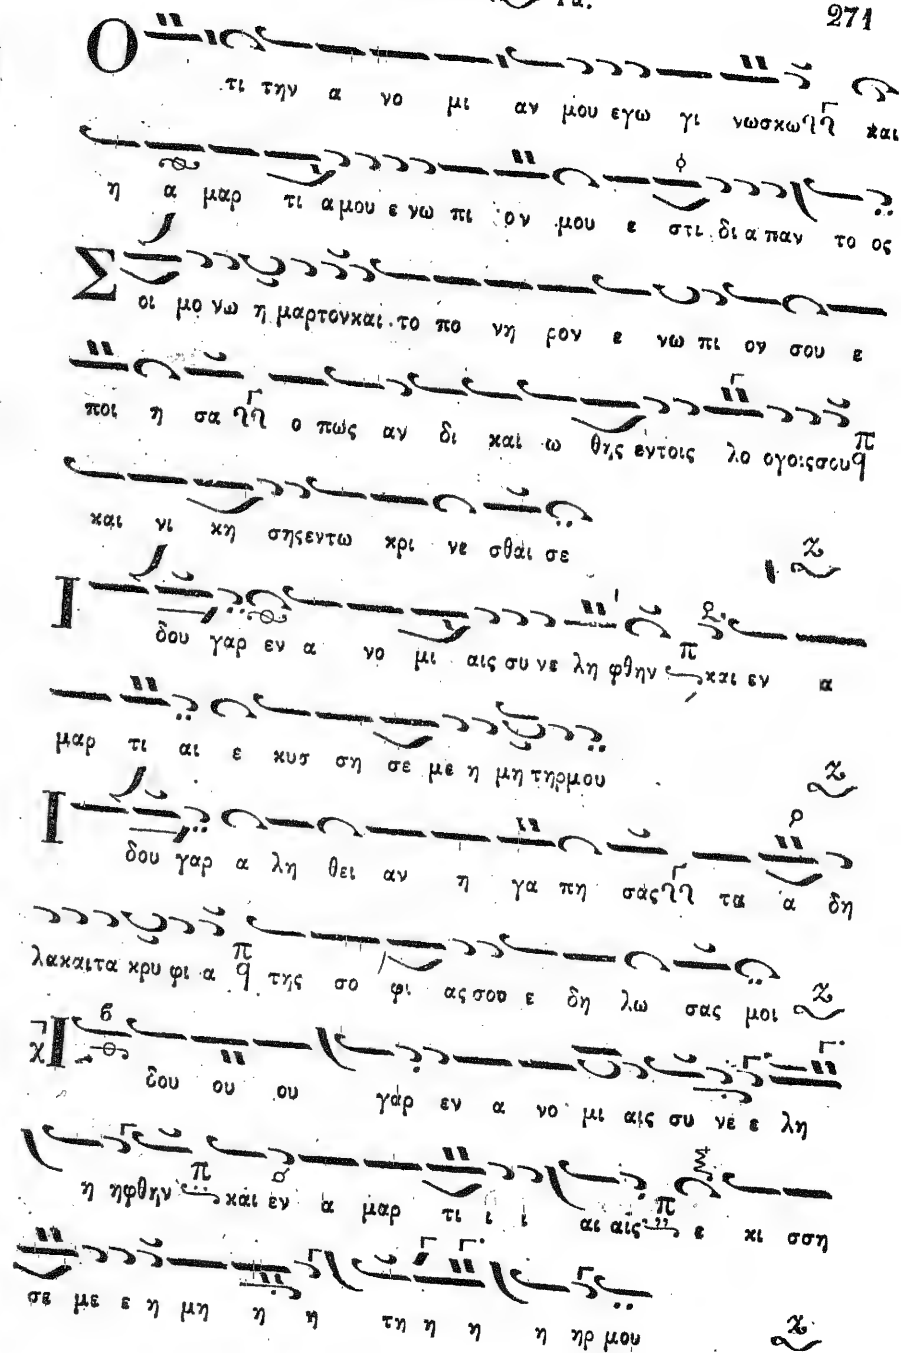 271
Ο τι την α νο μι αν μου εγω γι νωσκω και
η α μαρ τι α μου ε νω πι ον μου ε στι δι α παν το ος
Σ οι μο νω η μαρτον και το πο νη ρον ε νω πι ον σου ε
ποι η σα ο πως αν δι και ω θης εντοις λο ογοις σου
και νι κη σης εντω κρι νε σθαι σε
Ι δου γαρ εν α νο μι αις συ νε λη φθην και εν α
μαρ τι αι ε κισ ση σε με η μη τηρ μου
Ι δου γαρ α λη θει αν η γα πη σας τα α δη
λα και τα κρυ φι α της σο φι ας σου ε δη λω σας μοι
Ι δου ου ου γαρ εν α νο μι αις συ νε ε λη
η ηφθην και εν α μαρ τι ι ι αι αις ε κι σση
σε με ε η μη η η τη η η η ηρ μου